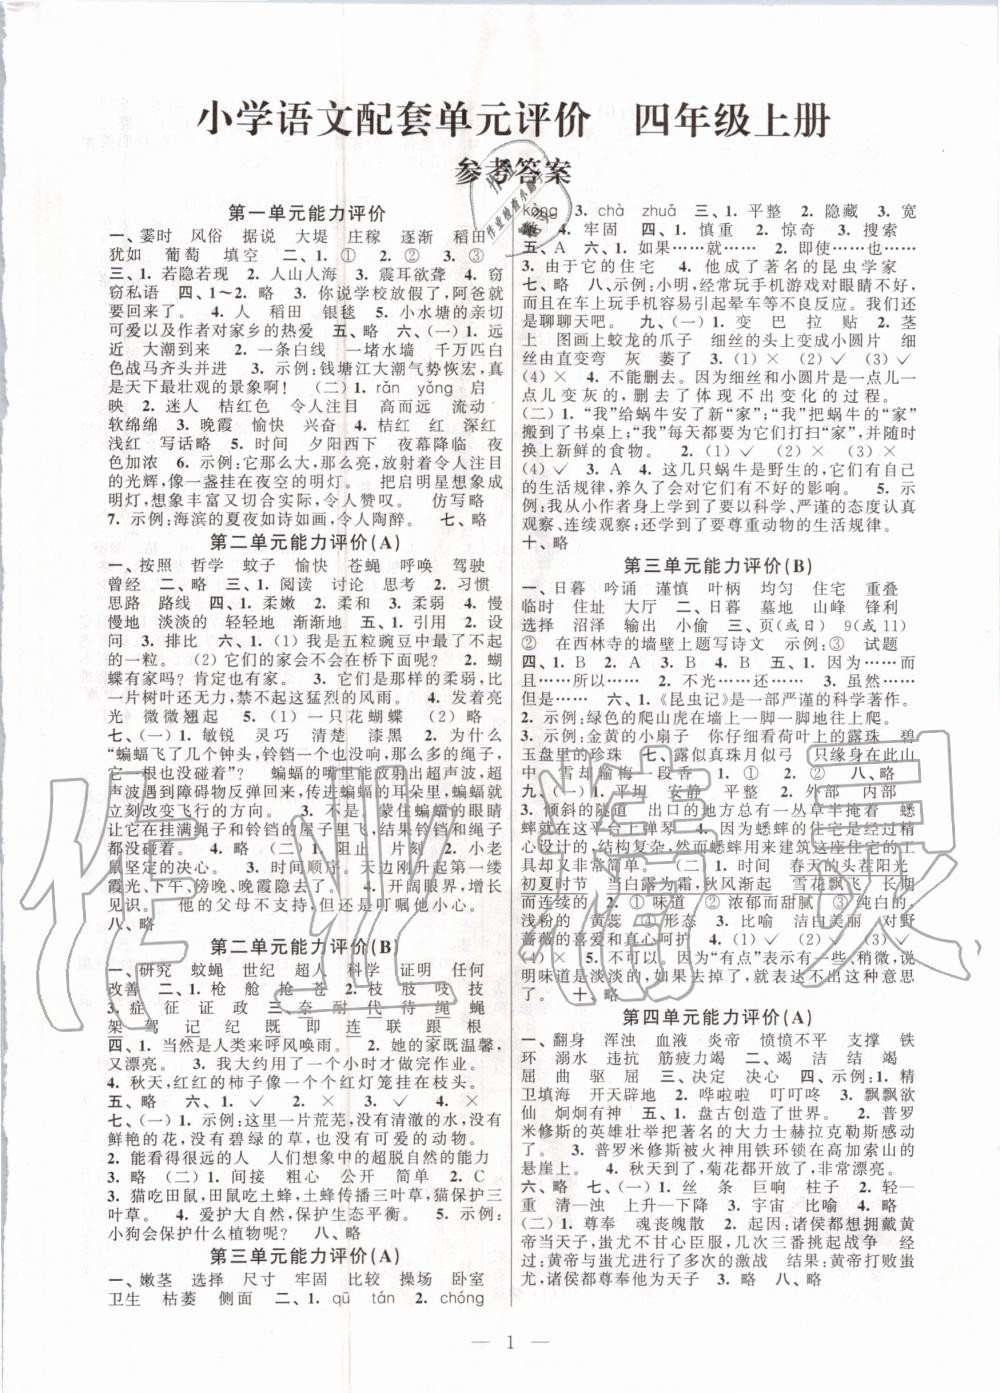 小学语文配套单元评价 四年级上册
参考答案
第一单元能力评价
一、霎时 风俗 据说 大堤 庄稼 逐渐 稻田
犹如 葡萄 填空 二、1. ① 2. ② 3. ③
三、1. 若隐若现 2. 人山人海 3. 震耳欲聋 4. 窃
窃私语 四、1～2. 略 3. 你说学校放假了,阿爸就
要回来了。 4. 人 稻田 银毯 5. 小水塘的亲切
可爱以及作者对家乡的热爱 五、略 六、(一)1. 远
近 大潮到来 2. 一条白线 一堵水墙 千万匹白
色战马齐头并进 3. 示例:钱塘江大潮气势恢宏,真
是天下最壮观的景象啊! (二)1. rǎn yǒng 启
映 2. 迷人 桔红色 令人注目 高而远 流动
软绵绵 3. 晚霞 愉快 兴奋 4. 桔红 红 深红
浅红 写话略 5. 时间 夕阳西下 夜幕降临 夜
色加浓 6. 示例:它那么大,那么亮,放射着令人注目
的光辉,像一盏挂在夜空的明灯。 把启明星想象成
明灯,想象丰富又切合实际,令人赞叹。 仿写略
7. 示例:海滨的夏夜如诗如画,令人陶醉。 七、略
第二单元能力评价(A)
一、按照 哲学 蚊子 愉快 苍蝇 呼唤 驾驶
曾经 二、略 三、1. 阅读 讨论 思考 2. 习惯
思路 路线 四、1. 柔嫩 2. 柔和 3. 柔弱 4. 慢
慢地 淡淡的 轻轻地 渐渐地 五、1. 引用 2. 设
问 3. 排比 六、1.(1)我是五粒豌豆中最了不起
的一粒。 (2)它们的家会不会在桥下面呢? 2. 蝴
蝶有家吗? 肯定也有家。 3. 它们是那样的柔弱,比
一片树叶还无力,禁不起这猛烈的风雨。 4. 发着亮
光 微微翘起 5.(1)一只花蝴蝶 (2)略
七、(一)1. 敏锐 灵巧 清楚 漆黑 2. 为什么
“蝙蝠飞了几个钟头,铃铛一个也没响,那么多的绳子,
它一根也没碰着”? 蝙蝠的嘴里能放射出超声波,超
声波遇到障碍物反弹回来,传进蝙蝠的耳朵里,蝙蝠就
立刻改变飞行的方向。 3. 不是。蒙住蝙蝠的眼睛
让它在挂满绳子和铃铛的屋子里飞,结果铃铛和绳子
都没碰着。 4. 略 (二)1. 阻止 片刻 2. 小老
鼠坚定的决心。 3. 时间顺序。天边刚升起第一缕
霞光、下午、傍晚、晚霞隐去时。 4. 开阔眼界,增长
见识。 他的父母不支持,但还是叮嘱他小心。
八、略
第二单元能力评价(B)
一、研究 蚊蝇 世纪 超人 科学 证明 任何
改善 二、1. 枪 舱 抢 苍 2. 枝 肢 吱 技
3. 症 征 证 政 三、奈 耐 代 待 绳 蝇
架 驾 记 纪 既 即 连 联 跟 根
四、1. 当然是人类来呼风唤雨。 2. 她的家既温馨,
又漂亮。 3. 我大约用了一个小时才做完作业。
4. 秋天,红红的柿子像一个个红灯笼挂在枝头。
五、略 六、1. ✓ 2. ✓ 3. ✓ 4. ✓ 5. ×
七、(一)1. 示例:这里一片荒芜,没有清澈的水,没有
鲜艳的花,没有碧绿的草,也没有可爱的动物。
2. 能看得很远的人 具有想象中的超脱自然的能力
3. 略 (二)1. 间接 粗心 公开 简单 2. C
3. 猫吃田鼠,田鼠吃土蜂,土蜂传播三叶草,猫保护三
叶草。 4. 爱护大自然,保护生态平衡。 5. 示例:
小狗会保护什么植物呢? 八、略
第三单元能力评价(A)
一、嫩茎 选择 尺寸 牢固 比较 操场 卧室
卫生 枯萎 侧面 二、1. qū tán 2. chóng
kòng 3. chà zhuǎ 三、1. 平整 2. 隐藏 3. 宽
敞 4. 牢固 四、1. 慎重 2. 惊奇 3. 搜索
五、A 六、1. 如果……就…… 2. 即使……也……
3. 由于它的住宅 4. 他成了著名的昆虫学家
七、略 八、示例:小明,经常玩手机游戏对眼睛不好,
而且在车上玩手机容易引起晕车等不良反应。我们还
是聊聊天吧。 九、(一)1. 变 巴 拉 贴 2. 茎
上 图画上蛟龙的爪子 细丝的头上变成小圆片 细
丝由直变弯 灰 萎了 3.(1)× (2)✓ (3)✓
(4)× 4. 不能删去。因为细丝和小圆片是一点儿一
点儿变灰的,删去了体现不出变化的过程。
(二)1. “我”给蜗牛安了新“家”;“我”把蜗牛的“家”
搬到了书桌上;“我”每天都要为它们打扫“家”,并随时
换上新鲜的食物。 2.(1)✓ (2)× (3)×
(4)✓ 3. A 4. 这几只蜗牛是野生的,它们有自己
的生活规律,养久了会对它们有不好的影响。 5. 示
例:我从小作者身上学到了要以科学、严谨的态度认真
观察、连续观察;还学到了要尊重动物的生活规律。
十、略
第三单元能力评价(B)
一、日暮 吟诵 谨慎 叶柄 均匀 住宅 重叠
临时 住址 大厅 二、日暮 墓地 山峰 锋利
选择 沼泽 输出 小偷 三、页(或日) 9(或11)
② 在西林寺的墙壁上题写诗文 示例:③ 试题
四、1. B 2. A 3. B 4. B 五、1. 因为……而
……所以…… 2. 不光……还…… 3. 虽然……
但是…… 六、1. 《昆虫记》是一部严谨的科学著作。
2. 示例:绿色的爬山虎在墙上一脚一脚地往上爬。
3. 示例:金黄的小扇子 你仔仔细细叶子上的露珠 碧
玉盘里的珍珠 七、露似真珠月似弓 只缘身在此山
中 雪却输梅一段香 1. ① 2. ② 八、略
九、(一)1. 平坦 安静 平整 2. 外部 内部
3. 倾斜的隧道 出口的地方总有一丛草半掩着 蟋
蟀就在这平台上弹琴 4. 因为蟋蟀的住宅是经过精
心设计的,结构复杂,然而蟋蟀用来建筑这座住宅的工
具却又非常简单。 (二)1. 时间 春天的头茬阳光
初夏时节 当白露为霜,秋风渐起 雪花飘飞 长期
而连续的 2. ①味道 ②浓郁而甜腻 ③纯白的,
浅粉的 黄蕊 ④形态 3. 比喻 洁白美丽 对野
蔷薇的喜爱和真心呵护 4.(1)✓ (2)× (3)✓
(4)× 5. 不可以,因为“有点”表示有一些,稍微,说
明味道是淡淡的,如果去掉了,就不能体现这种意思
了。 十、略
第四单元能力评价(A)
一、翻身 浑浊 血液 炎帝 愤愤不平 支撑 铁
环 溺水 违抗 筋疲力竭 二、竭 渴 洁 结
屈 曲 驱 屈 三、决定 决心 四、示例:1. 精
卫填海 开天辟地 2. 哗啦啦 叮叮咚 3. 飘飘欲
仙 炯炯有神 五、1. 盘古创造了世界。 2. 普罗
米修斯的英雄壮举把著名的大力士赫拉克勒斯感动
了。 3. 普罗米修斯被火神用铁环锁在高加索山的
悬崖上。 4. 秋天到了,菊花开得非常漂亮。
六、略 七、(一)1. 丝 条 巨响 柱子 2. 轻—
重 清—浊 上升—下降 3. 宇宙 比喻 4. 略
(二)1. 尊奉 魂丧魄散 2. 起因:诸侯都想拥戴黄
帝当天子,蚩尤不甘心臣服,几次三番挑起战争 经
过:黄帝与蚩尤进行了多次的激战 结果:黄帝打败蚩
尤,诸侯都尊奉他为天子 3. 略 八、略
— 1 —
作业精灵